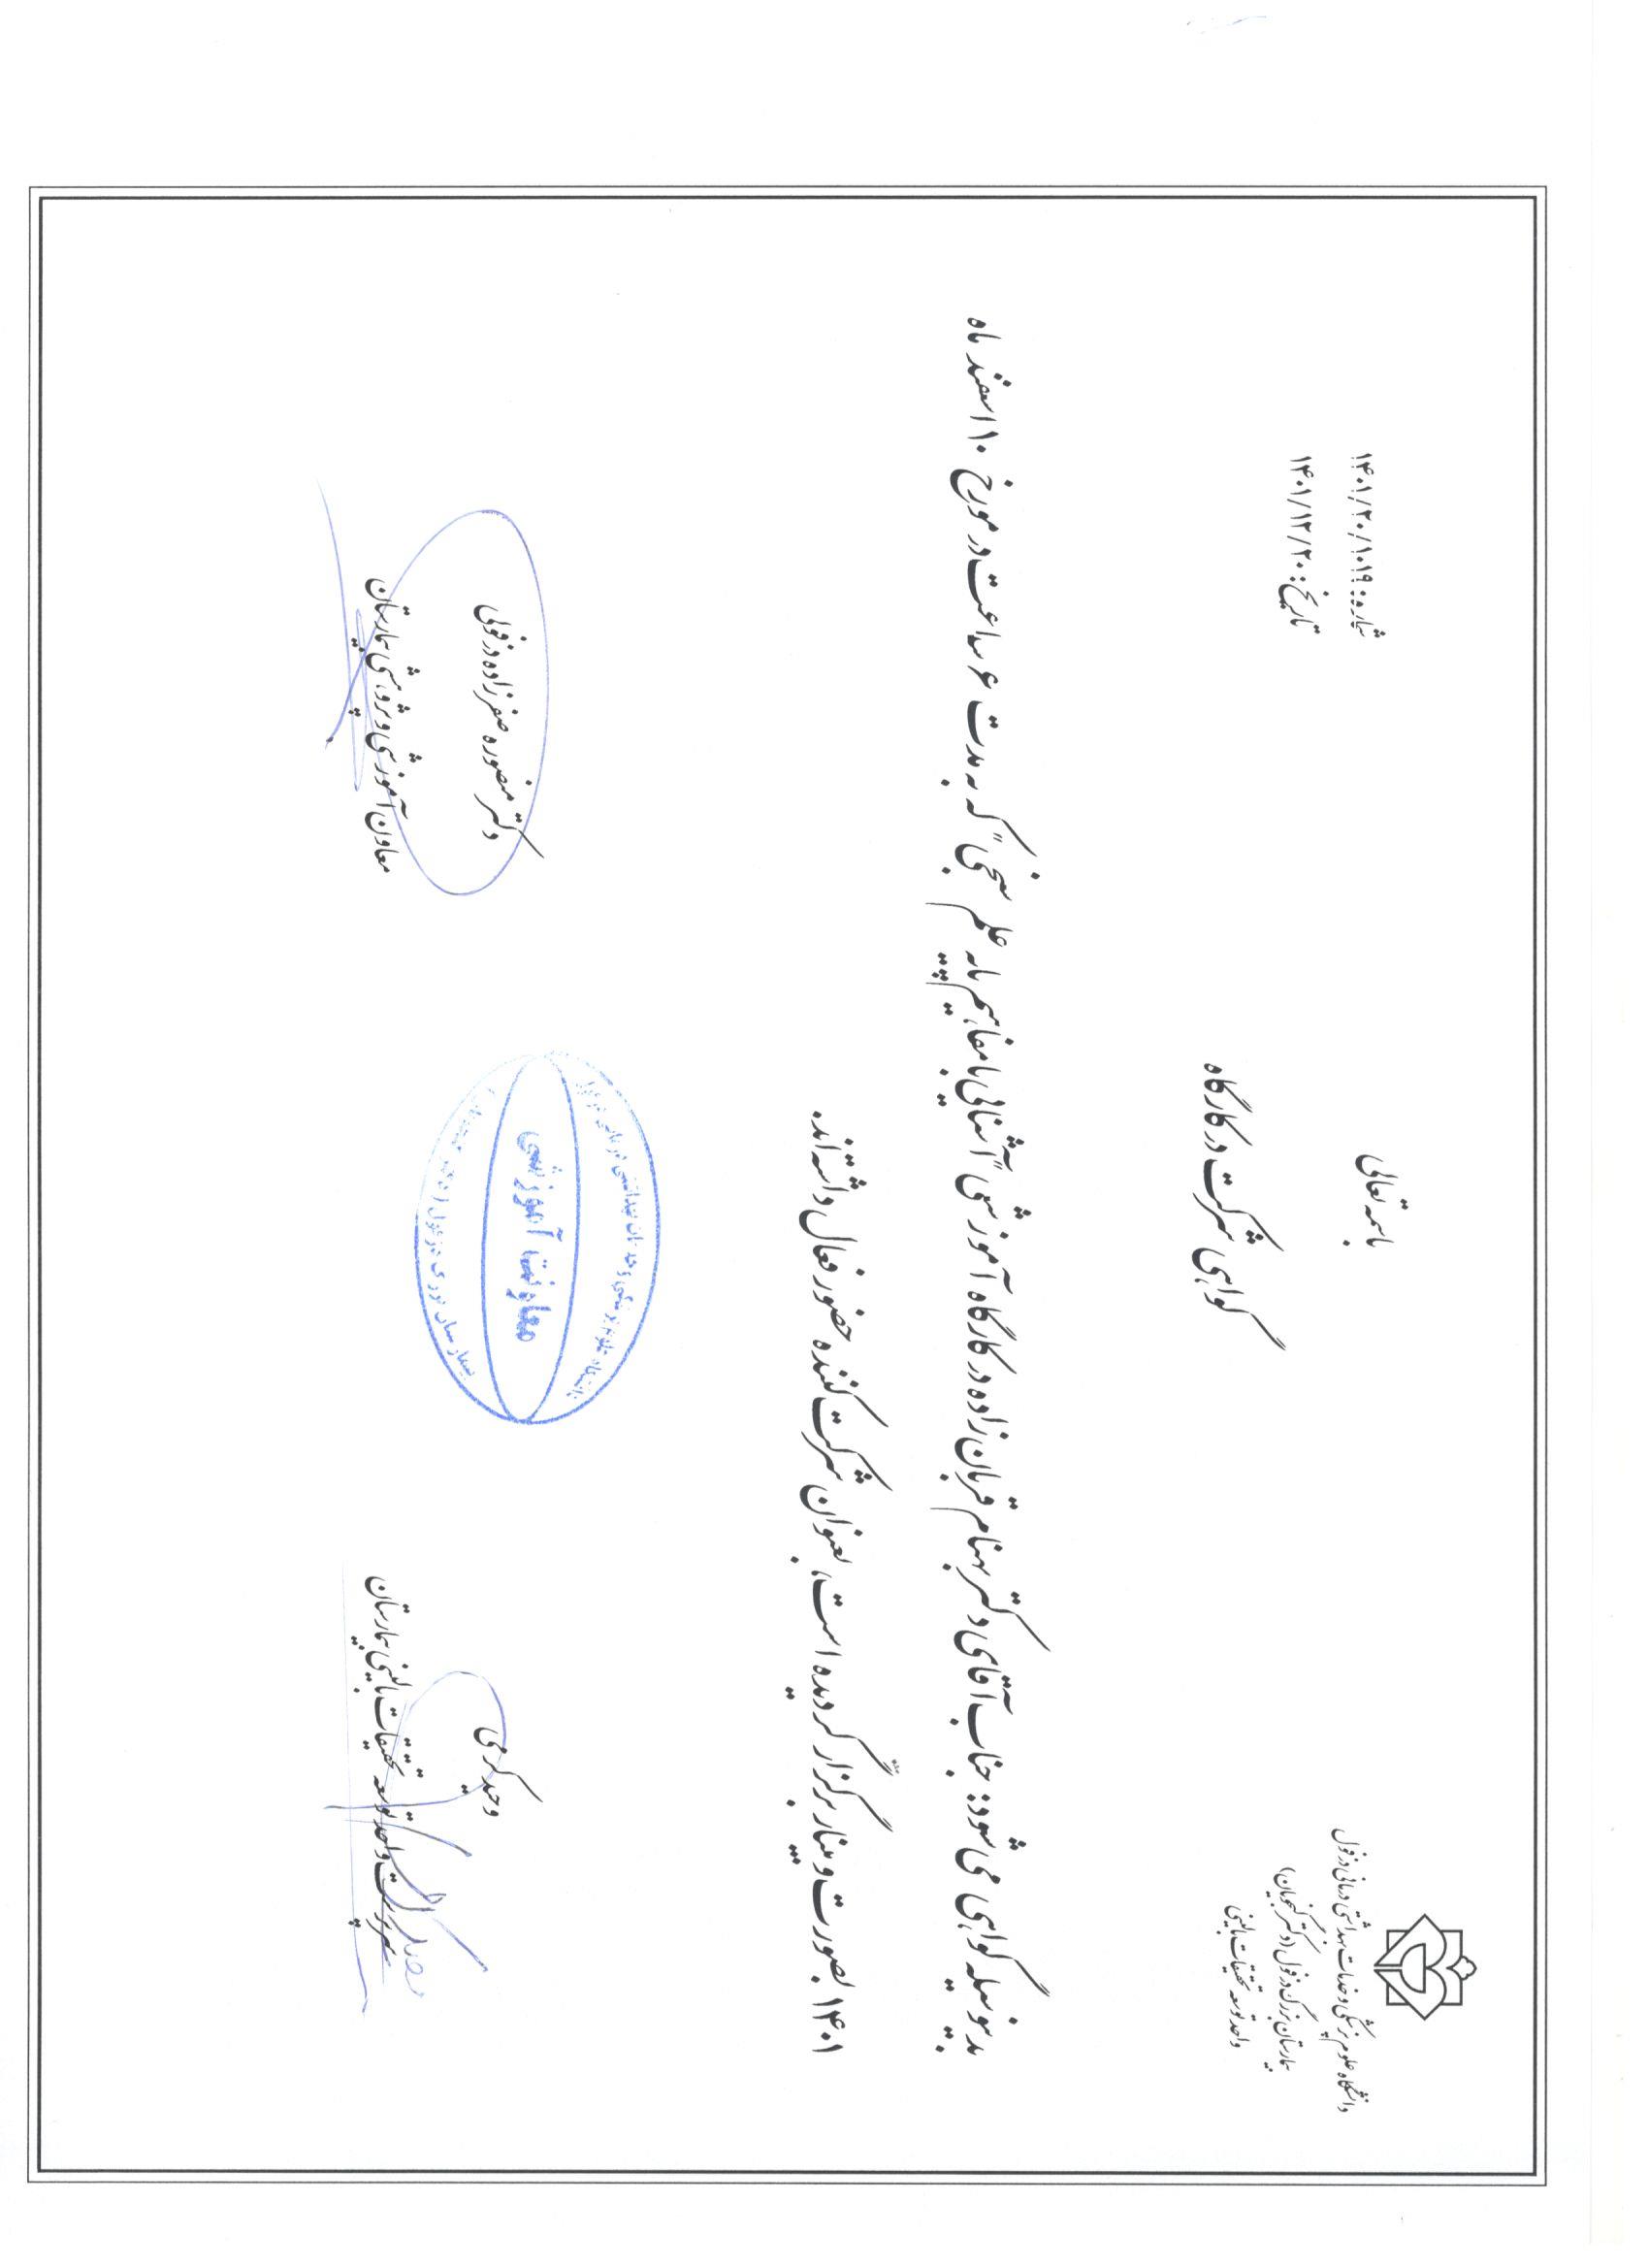 باسمه تعالی
دانشگاه علوم پزشکی و خدمات بهداشتی درمانی دزفول
بیمارستان بزرگ دزفول (دکتر گنجویان)
واحد توسعه تحقیقات بالینی
شماره: ۱۴۰۱/۲۰/۱۰۱۹
تاریخ: ۱۴۰۱/۱۲/۲۰
گواهی شرکت در کارگاه
بدینوسیله گواهی می شود: جناب آقای دکتر بهنام قربان زاده در کارگاه آموزشی "آشنایی با مفاهیم پایه علم سنجی" که به مدت ۶ ساعت در مورخ ۱۰ اسفند ماه
۱۴۰۱ بصورت وبینار برگزار گردیده است، بعنوان شرکت کننده حضور فعال داشته اند.
وحید کرمی
سرپرست واحد توسعه تحقیقات بالینی بیمارستان
معاونت آموزشی
دکتر منصوره صفرزاده دزفولی
معاون آموزشی و پژوهشی بیمارستان